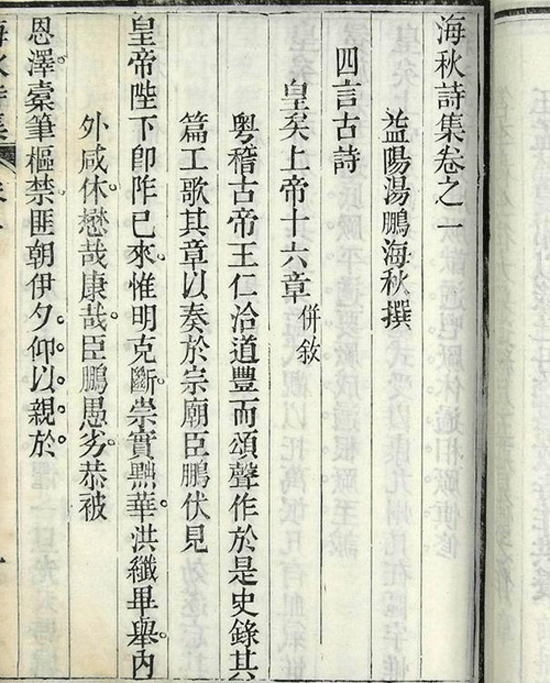 海秋詩集卷之一
益陽湯鵬海秋撰
四言古詩
皇矣上帝十六章併敘
粵稽古帝王仁洽道豐而頌聲作於是史錄其
篇工歌其章以奏於宗廟臣鵬伏見
皇帝陛下卽阼已來惟明克斷崇實黜華洪纖畢舉內
外咸休懋哉康哉臣鵬愚劣恭被
恩澤橐筆樞禁匪朝伊夕仰以親於
海秋詩集